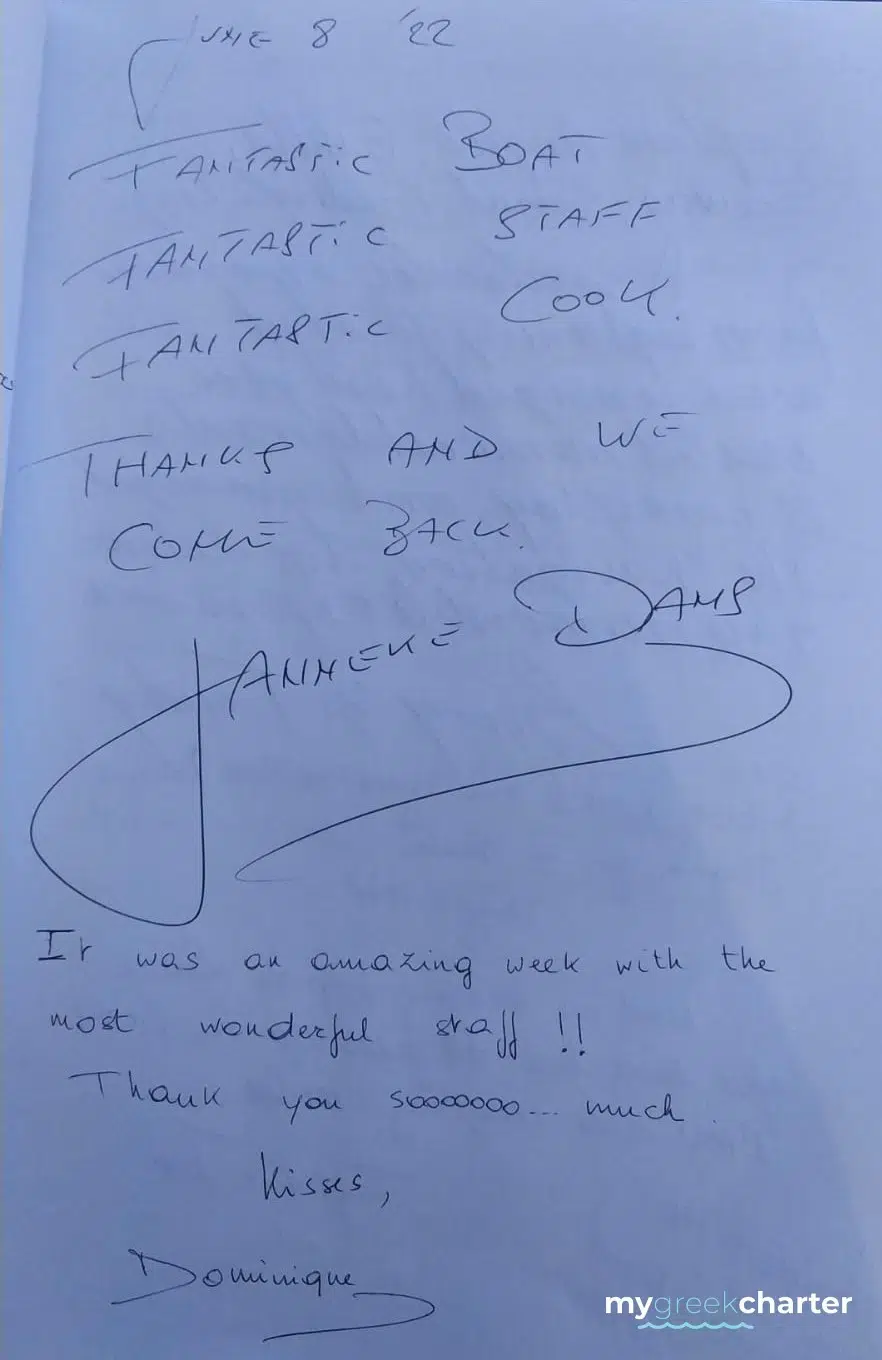 JUNE 8 '22
FANTASTIC BOAT
FANTASTIC STAFF
FANTASTIC COOK.
THANKS AND WE
COME BACK.
JANNEKE DAMS
It was an amazing week with the
most wonderful staff !!
Thank you sooooooo... much.
Kisses,
Dominique
mygreekcharter